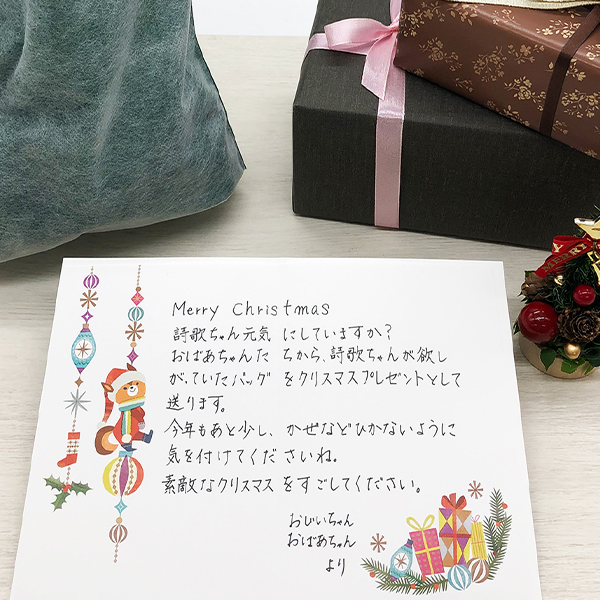 Merry Christmas
詩歌ちゃん元気にしていますか？
おばあちゃんたちから、詩歌ちゃんが欲し
がっていたバッグをクリスマスプレゼントとして
送ります。
今年もあと少し、かぜなどひかないように
気を付けてくださいね。
素敵なクリスマスをすごしてください。
おじいちゃん
おばあちゃん
より
MERRY